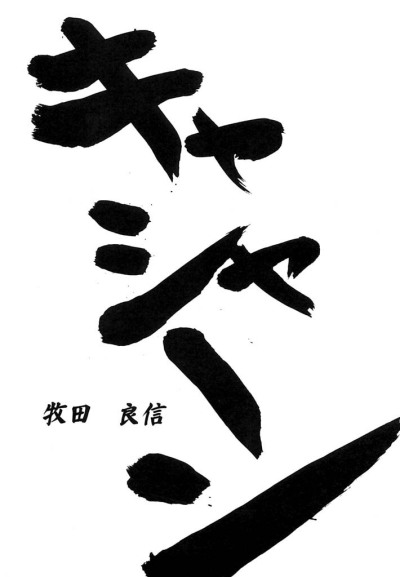 キャシャーン
牧田　良信